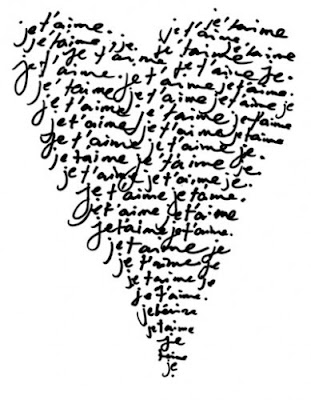 je t'aime
t'aime. je t'aime.
je t'aime. je. je t'aime je
t'je t'aime. je t'aime je.
je t'aime. je t'aime je t'aime.
je t'aime je t'aime je t'aime je
je t'aime. je t'aime je t'aime
je t'aime je t'aime je t'aime
je t'aime. je t'aime je.
je t'aime je t'aime je
je t'aime je t'aime je.
je t'aime je t'aime.
je t'aime je t'aime
je t'aime je t'aime.
je t'aime je
je t'aime je
je t'aime je
je t'aime.
je t'aime
je
t'aime
je